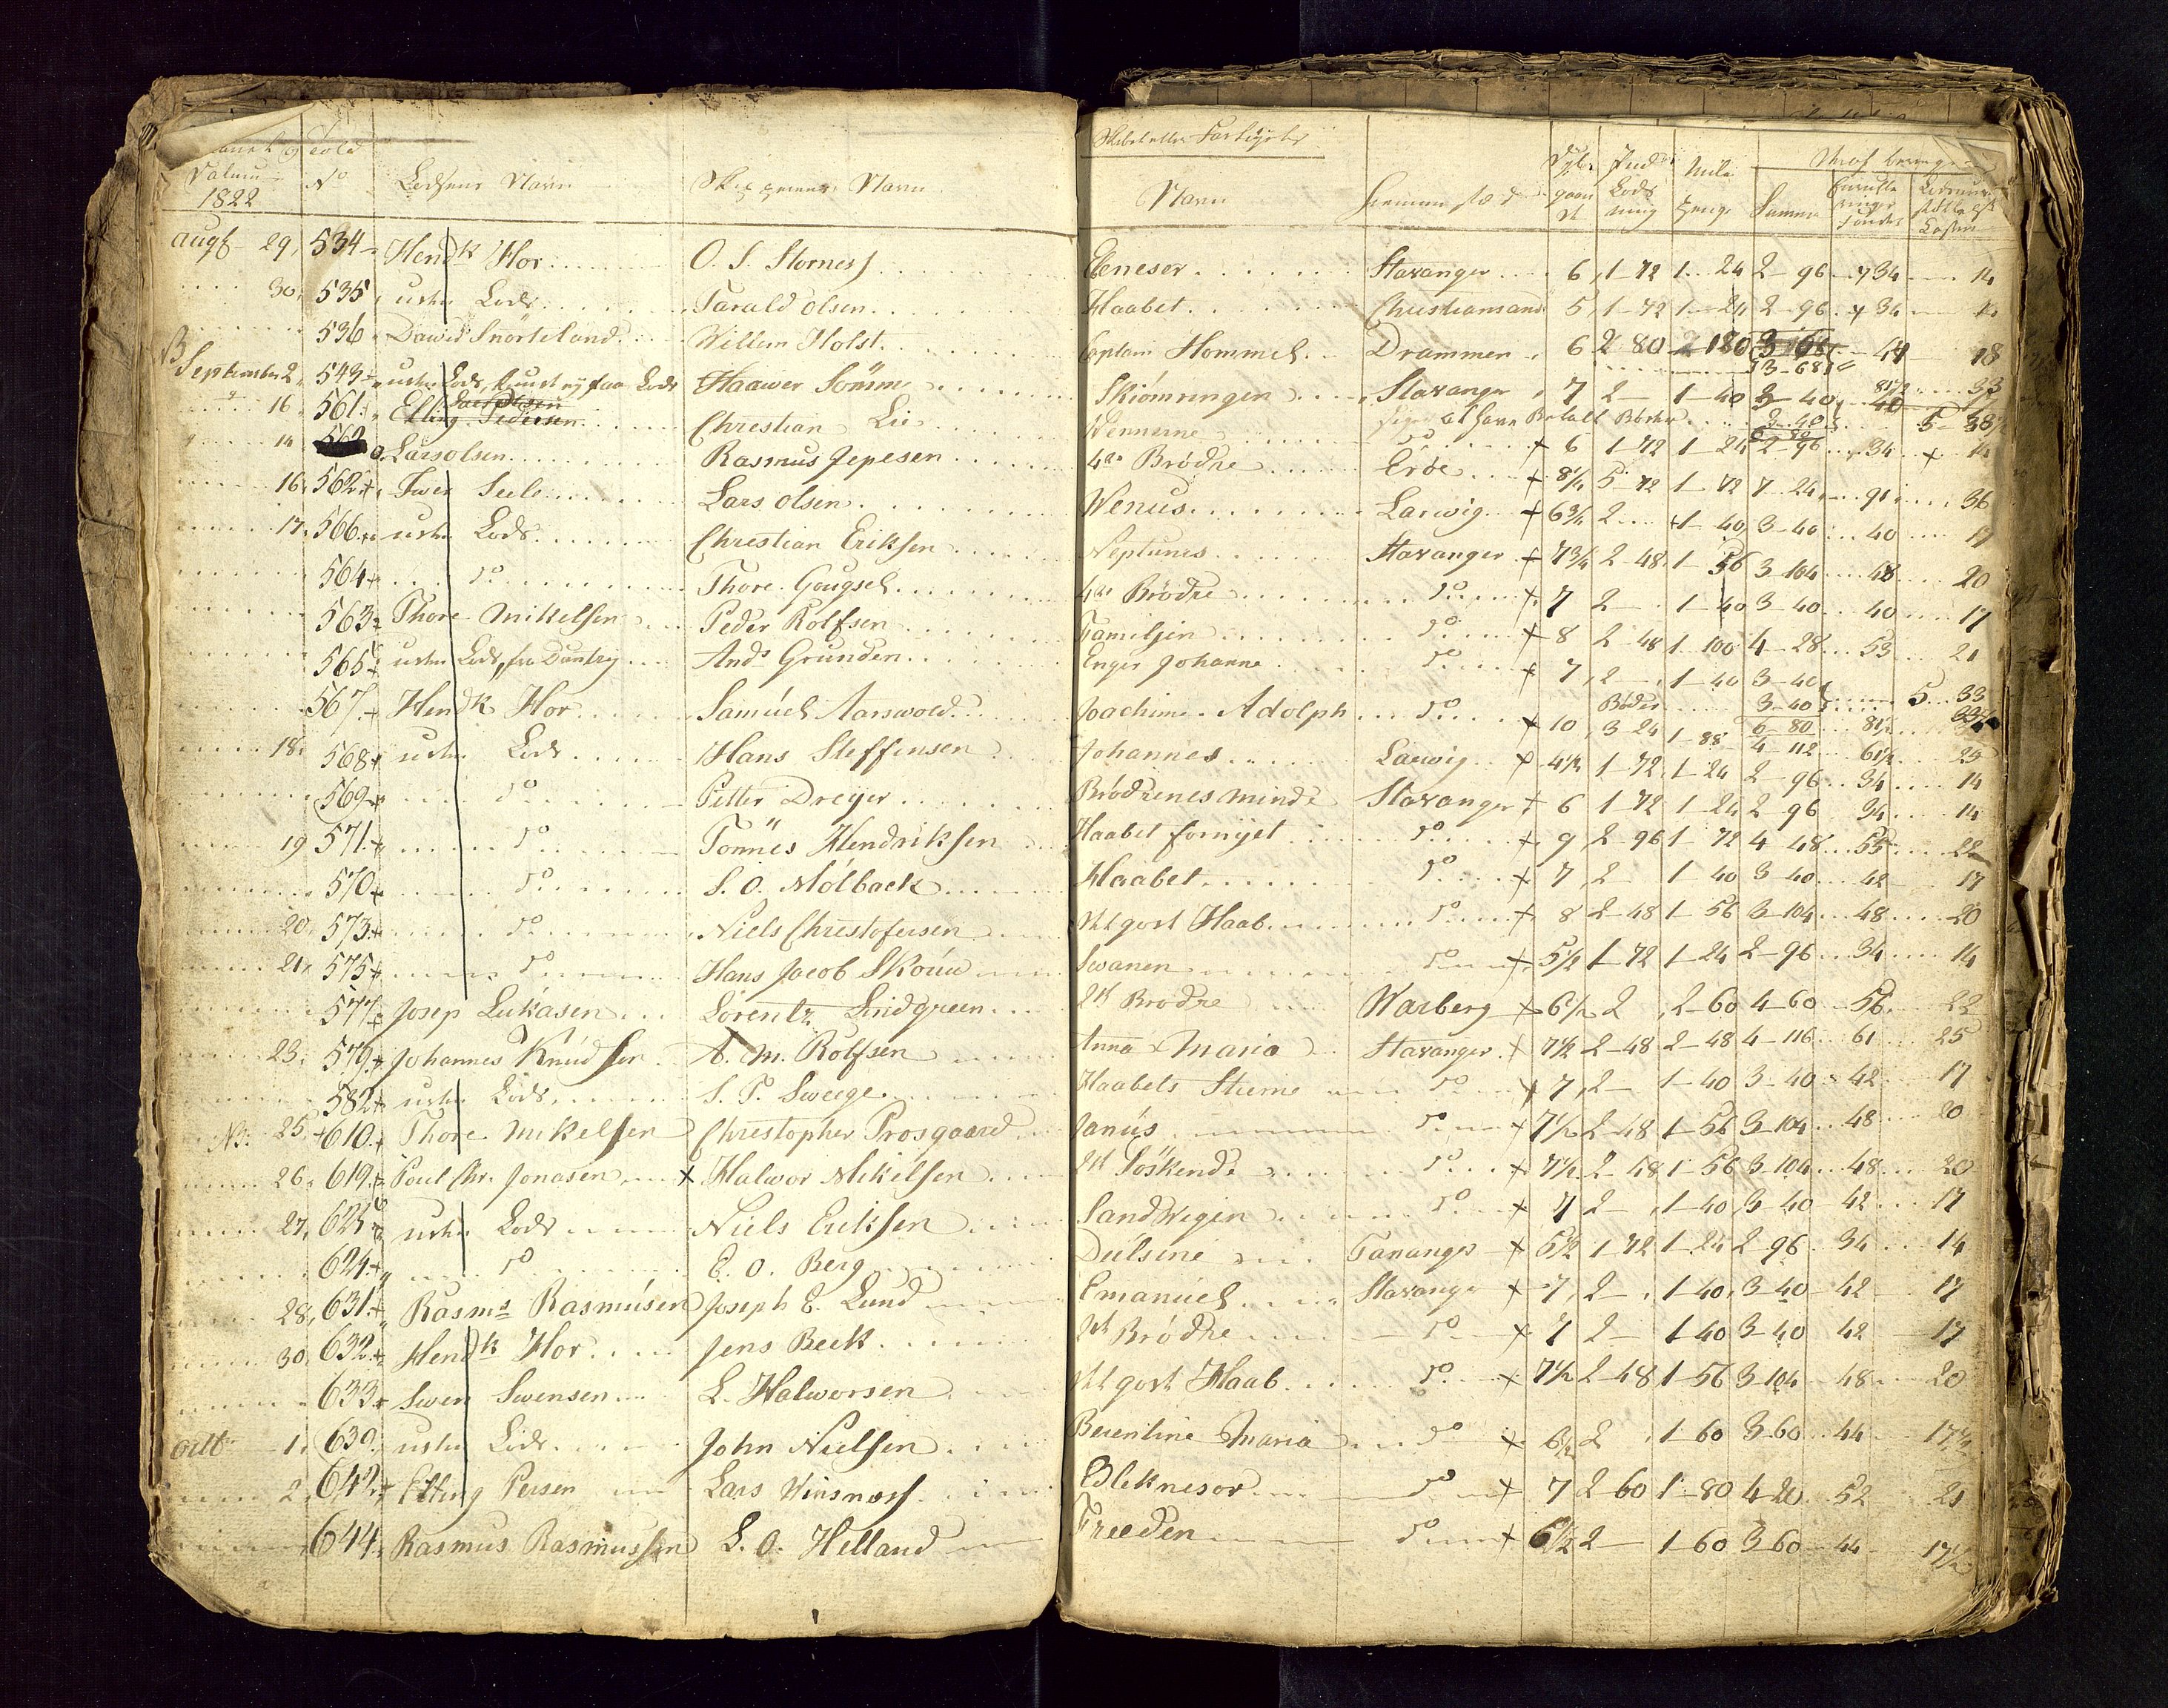 Datum No Lodsens Navn Skippernes Navn
1822
Skibet eller Fartøyets
Navn Hiemmestæd Dyb gaaende Lods ning Mile Penge Summa
augst 29, 534 Hendk Hor O. S. Storness Ebeneser Stavanger 6 1-72 1-24 2-96 34 14
30, 535 uden Lods Tarald Olsen Haabet Christiansand 5 1-72 1-24 2-96 34 14
536 David Snörteland Willem Holst Captain Hommel Drammen 6 2 80 3-68 41 18
September 2, 543 uden Lods Haawer Sömme Skiömringen Stavanger 7 2- 1-40 3-40 81½ 33
at have Betalt Bøder 3-40 40 5
16 561 Elling Pedersen Christian Lie Wennerne do 6 1-72 1-24 2-96 34 14
14 562 Lars olsen Rasmus Jepesen 4re Brødre Eröe 8½ 5-72 1-72 7-24 91 36
16, 562 Iver Seele Lars Olsen Wenus Larwig 6¾ 2 1-40 3-40 40 17
17, 566 uden Lods Christian Eriksen Neptunus Stavanger 7¾ 2-48 1-56 3-104 48 20
564 do Thore Gougsel 4re Brødre do 7 2- 1-40 3-40 40 17
563 Thore Mikelsen Peder Rolfsen Familjen do 8 2-48 1-100 4-28 53 21
565 uden Lods, fra Dantzig Ands Grunden Enger Johanne do 7, 2- 1-40 3-40
Bøder 3-40 5 33
6-80 81½
567 Hendk Hor Samúel Aarswold Joachim Adolph do 10, 3-24 1-88 4-112 61½ 25
18, 568 uden Lods Hans Steffensen Johannes Larwig 4½ 1-72 1-24 2-96 34 14
569 do Petter Dreyer Brödrenes Minde Stavanger 6 1-72 1-24 2-96 34 14
19 571 do Tönnes Hendriksen Haabet fornyet do 9 2-96 1-72 4-48 55 22
570 do S. O. Mölback Haabet do 7, 2- 1-40 3-40 42 17
20, 573 do Niels Christofersen Et godt Haab do 8 2-48 1-56 3-104 48 20
21, 575 do Hans Jacob Skouw Swanen do 5½ 1-72 1-24 2-96 34 14
577 Josep Lukasen Lorentz Lindgreen 2de Brødre Warberg 6½ 2 2-60 4-60 56 22
23, 579 Johannes Knúdsen A. M. Rolfsen Anna Maria Stavanger 7½ 2-48 2-48 4-116 61 25
582 uden Lods S. P. Sweege Haabets Stierne do 7, 2- 1-40 3-40 42 17
NB. 25, 610 Thore Mikelsen Christopher Prosgaard Janús do 7½ 2-48 1-56 3-104 48 20
26, 619 Poul Chr. Jonasen x Halwor Mikelsen 2de Söskende do 7½ 2-48 1-56 3-104 48 20
27, 625 uden Lods Niels Eriksen Sandwigen do 7 2- 1-40 3-40 42 17
624 do E. O. Berg Delsine Tananger 5½ 1-72 1-24 2-96 34 14
28, 631 Rasms Rasmúsen Joseph E. Lund Emanúel Stavanger 7, 2- 1-40 3-40 42 17
30, 632 Hendk Hor Jens Beck 2de Brødre do 7 2- 1-40 3-40 42 17
633 Swen Swensen L. Halworsen Et godt Haab do 7½ 2-48 1-56 3-104 48 20
octb 1, 639 uden Lods John Nielsen Berentine Maria do 6½ 2 1-60 3-60 44 17½
2, 642 Elling Persen Lars Winsness Ebleknesor do 7 2 60 1-80 4 20 52 21
644 Rasmus Rasmussen L. O. Helland Freeden do 6½ 2- 1-60 3 60 44 17½